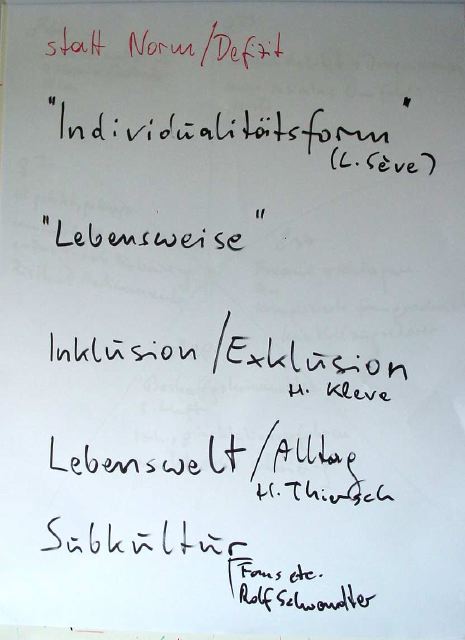 statt Norm/Defizit
"Individualitätsform"
(L. Sève)
"Lebensweise"
Inklusion/Exklusion
H. Kleve
Lebenswelt/Alltag
H. Thiersch
Subkultur
Fans etc.
Rolf Schwendter